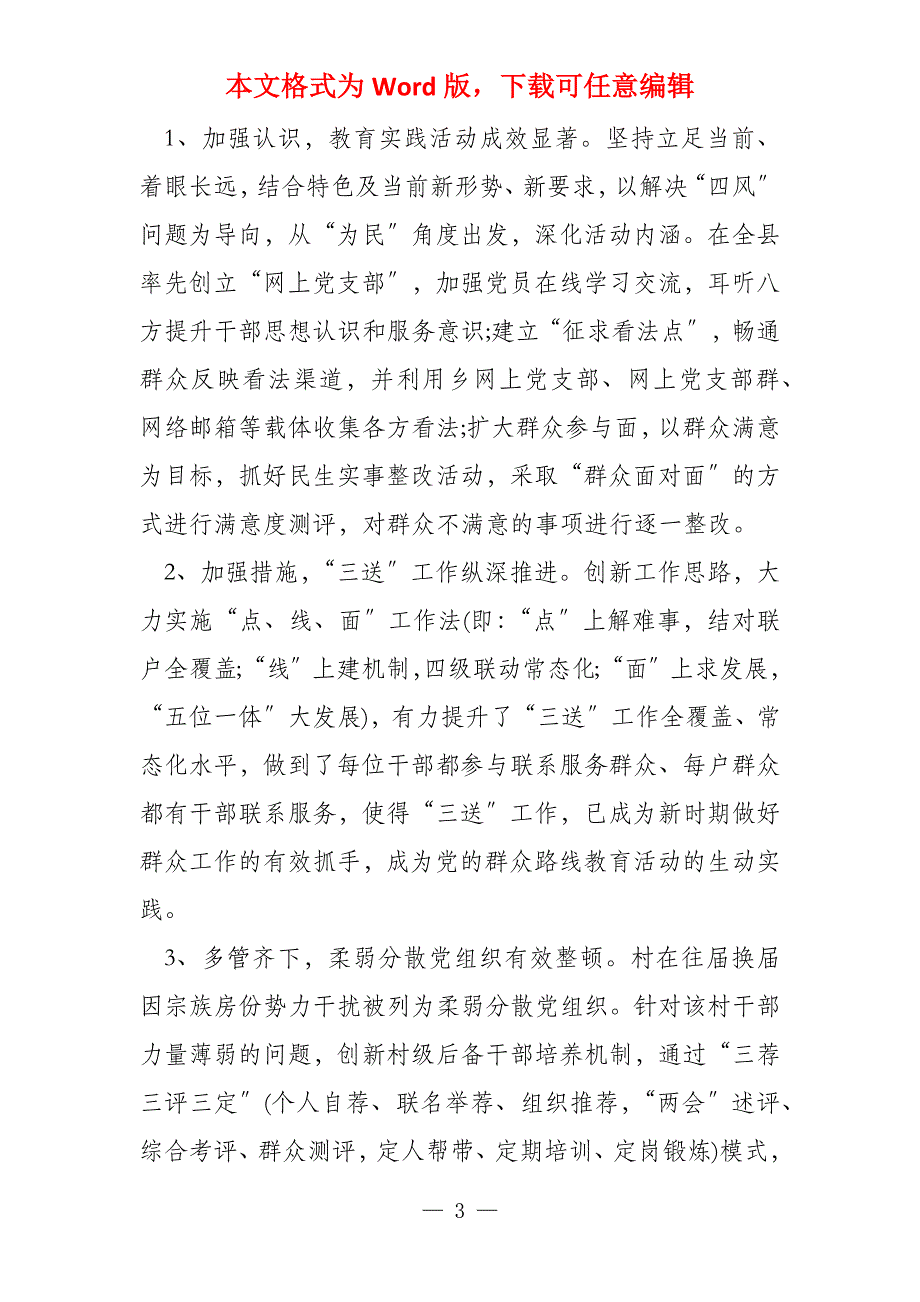 本文格式为 Word 版，下载可任意编辑
1、加强认识，教育实践活动成效显著。坚持立足当前、
着眼长远，结合特色及当前新形势、新要求，以解决“四风〞
问题为导向，从“为民〞角度出发，深化活动内涵。在全县
率先创立“网上党支部〞，加强党员在线学习交流，耳听八
方提升干部思想认识和服务意识;建立“征求看法点〞，畅通
群众反映看法渠道，并利用乡网上党支部、网上党支部群、
网络邮箱等载体收集各方看法;扩大群众参与面，以群众满意
为目标，抓好民生实事整改活动，采取“群众面对面〞的方
式进行满意度测评，对群众不满意的事项进行逐一整改。
2、加强措施，“三送〞工作纵深推进。创新工作思路，大
力实施“点、线、面〞工作法(即：“点〞上解难事，结对联
户全覆盖;“线〞上建机制,四级联动常态化;“面〞上求发展，
“五位一体〞大发展)，有力提升了“三送〞工作全覆盖、常
态化水平，做到了每位干部都参与联系服务群众、每户群众
都有干部联系服务，使得“三送〞工作，已成为新时期做好
群众工作的有效抓手，成为党的群众路线教育活动的生动实
践。
3、多管齐下，柔弱分散党组织有效整顿。村在往届换届
因宗族房份势力干扰被列为柔弱分散党组织。针对该村干部
力量薄弱的问题，创新村级后备干部培养机制，通过“三荐
三评三定〞(个人自荐、联名举荐、组织推荐，“两会〞述评、
综合考评、群众测评，定人帮带、定期培训、定岗锻炼)模式，
— 3 —